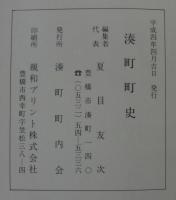 平成四年四月吉日　発行
湊町町史
編集者
代表　夏目友次
豊橋市湊町一四〇
☎(〇五三二)五四-五三三六
発行所　湊町町内会
印刷所　親和プリント株式会社
豊橋市西幸町字笠松三八-四